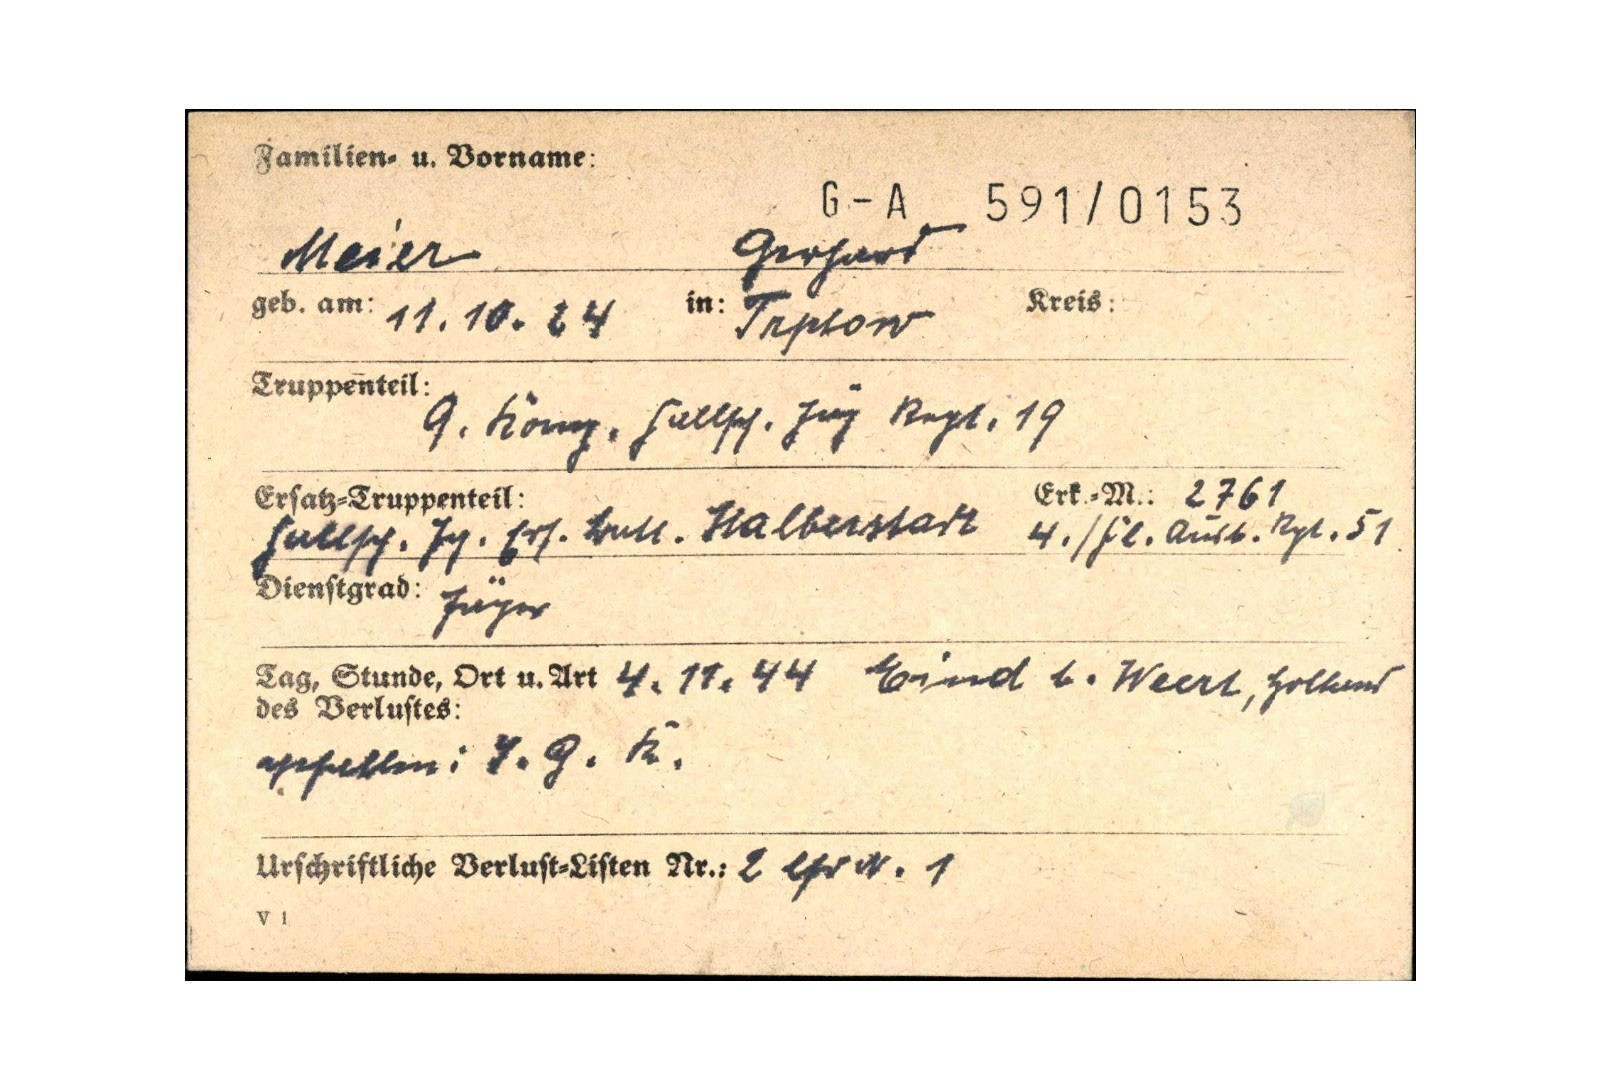 Familien- u. Vorname:
G-A 591/0153
Meier Gerhard
geb. am: 11.10.24 in: Treptow Kreis:
Truppenteil:
9. Komp. Fallsch. Jäg Regt. 19
Ersatz-Truppenteil: Erk.-M.: 2761
Fallsch. Jg. Ers. Batl. Halberstadt 4./Fl. Ausb. Rgt. 51
Dienstgrad: Jäger
Tag, Stunde, Ort u. Art 4.11.44 Eind b. Weert, Holland
des Verlustes:
gefallen: J. G. K.
Urschriftliche Verlust-Listen Nr.: 2 lfd N. 1
V 1